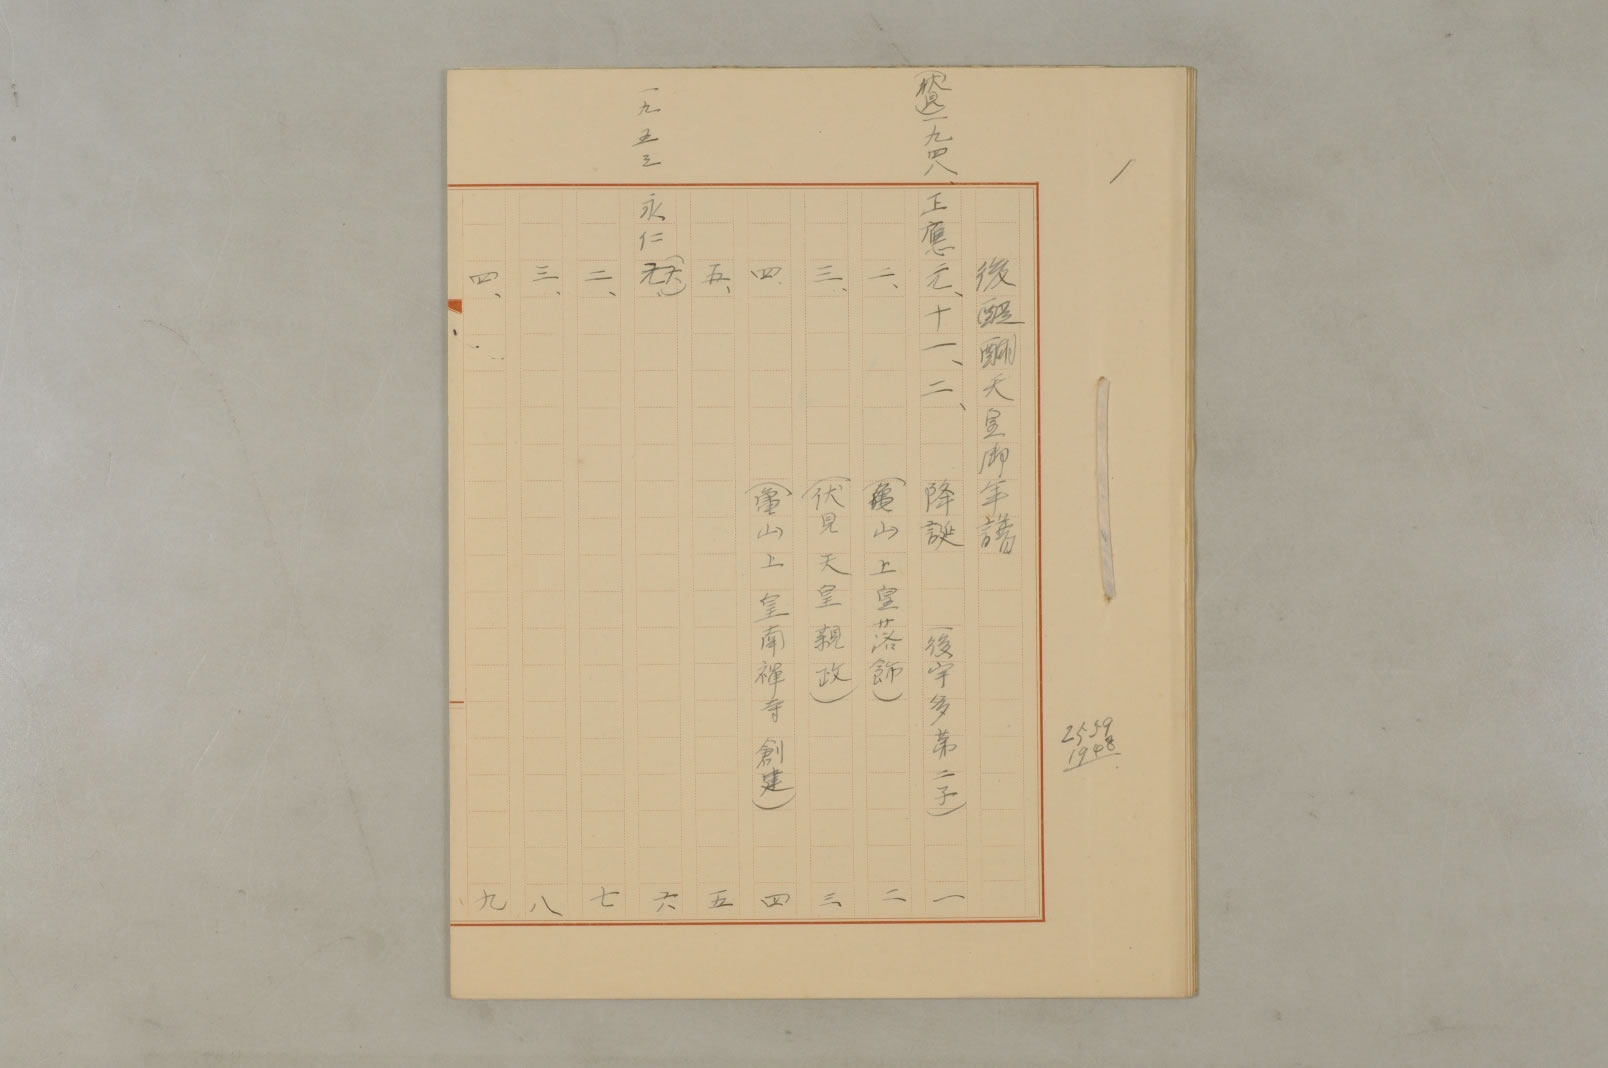 1
2559
1948
後醍醐天皇御年譜
(伏見)一九四八、正應元、十一、二、 降誕 (後宇多第二子) 一
二、 (亀山上皇落飾) 二
三、 (伏見天皇親政) 三
四 (亀山上皇南禅寺創建) 四
五、 五
一九五三 永仁元、 六
二、 七
三、 八
四、 九